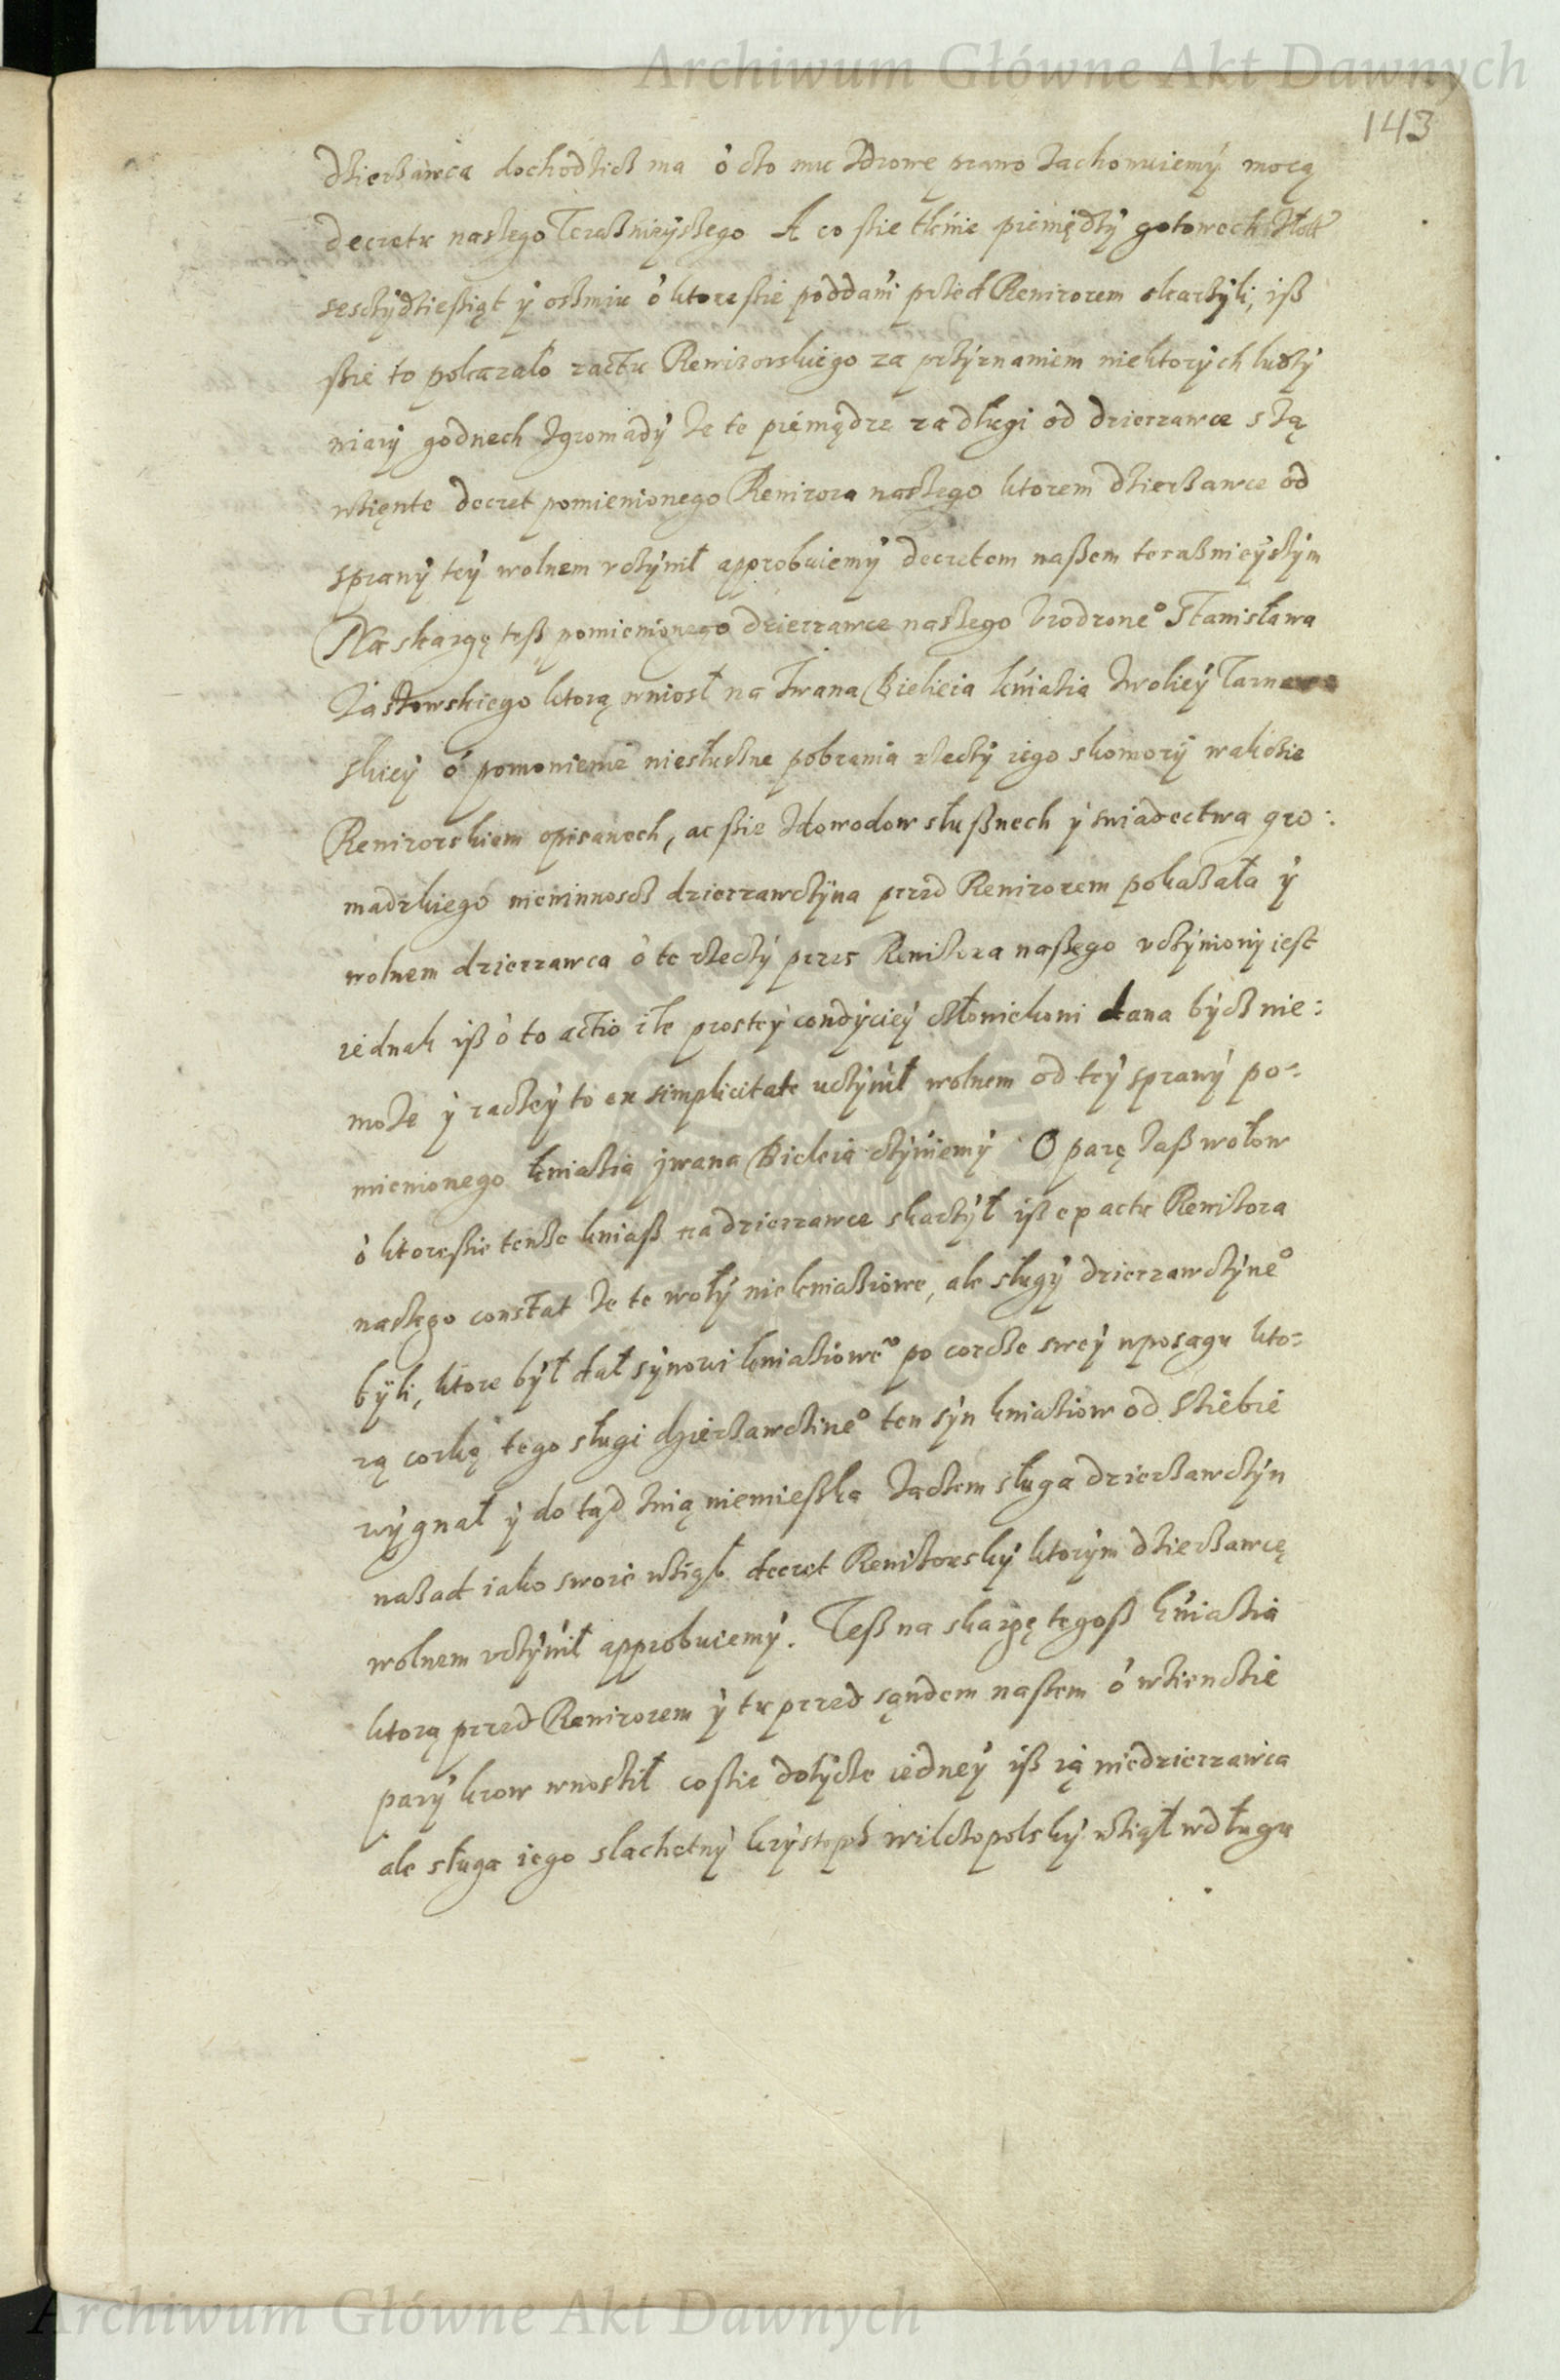 Archiwum Główne Akt Dawnych
143
dzierżawca dochodzicz ma o czo mu zdrowe prawo zachowuiemy mocą
decretu naszego Teraßnieyszego A co ßie tknie pieniędzy gotowech złott
sesczydzießiąt y oszmiu o ktore ßie poddani przed Rewizorem skarzyli, iß
ßie to pokazało zactu Rewizorskiego za przyznaniem niektorych ludzy
wiary godnech zgromady że te pieniądze za długi od dzierzawce są
wzięnte decret pomienionego Rewizora naszego ktorem dzierżawce od
sprawy tey wolnem vczynił approbuiemy decretem naßem teraßnieyszym
Na skargę teß pomienionego dzierzawce naszego Vrodzone° Stanisława
Zastowskiego ktorą wniosł na Iwana Bielicia kniazia zwoliey Tarnaw
skiey o pomowienie niesłuszne pobrania rzeczy iego skomory wakczie
Rewizorskiem opisanech, ac ßie zdowodow słußnech y swiadectwa gro:
madzkiego niewinnoscz dzierzawczyna przed Rewizorem pokazała y
wolnem dzierzawca o te rzeczy przes Rewizora naßego vczyniony iest
iednak iß o to actio ile prostey condyciey człowiekowi dana bycz nie:
może y raczey to ex simplicitate uczynił wolnem od tey sprawy po:
mienionego kniazia jwana Bielcia czyniemy O parę zaß wołow
o ktore ßie tenże kniaß na dzierzawce skarzył iß ex actu Rewizora
naszego constat że te woły nie kniaziowe, ale sługy dzierzawczyne°
byli, ktore był dał synowi kniaziowe° po corcze swey wposagu kto:
rą corkę tego sługi dzierżawczine° ten syn kniaziow od siebie
wygnał y do tąd znią niemießka zaczem sługa dzierżawczyn
nazad iako swoie wziął decret Rewizorsky ktorym dzierżawcę
wolnem vczynił approbuiemy. Teß na skargę tegoß kniazia
ktorą przed Rewizorem y tu przed sąndem naszem o wzienczie
pary krow wnosził co ßie dotycze iedney iß ią nie dzierzawca
ale sługa iego slachetny krystoph wilczopolsky wziął wdługu
Archiwum Główne Akt Dawnych